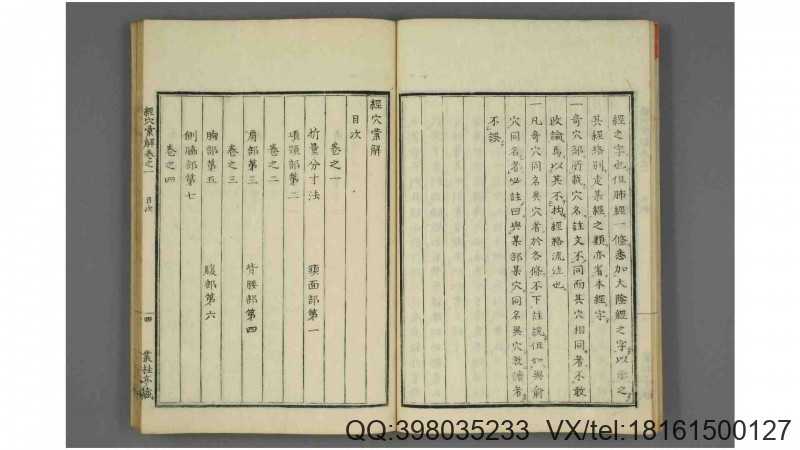 經之字也但肺經一條悉加大陰經之字以示之
其經絡別走某經之類亦省本經字
一奇穴部所載穴名註文不同而其穴相同者不敢
改論焉以其不拘經絡流注也
一凡奇穴同名異穴者於各條不下註說但如與前
穴同名者必註曰與某部某穴同名異穴教讀者
不誤
經穴彙解
目次
卷之一
折量分寸法 頭面部第一
項頸部第二
卷之二
肩部第三 背腰部第四
卷之三
胸部第五 腹部第六
側脇部第七
卷之四
經穴彙解卷之一 目次 四 叢桂亭藏
QQ:398035233 VX/tel:18161500127